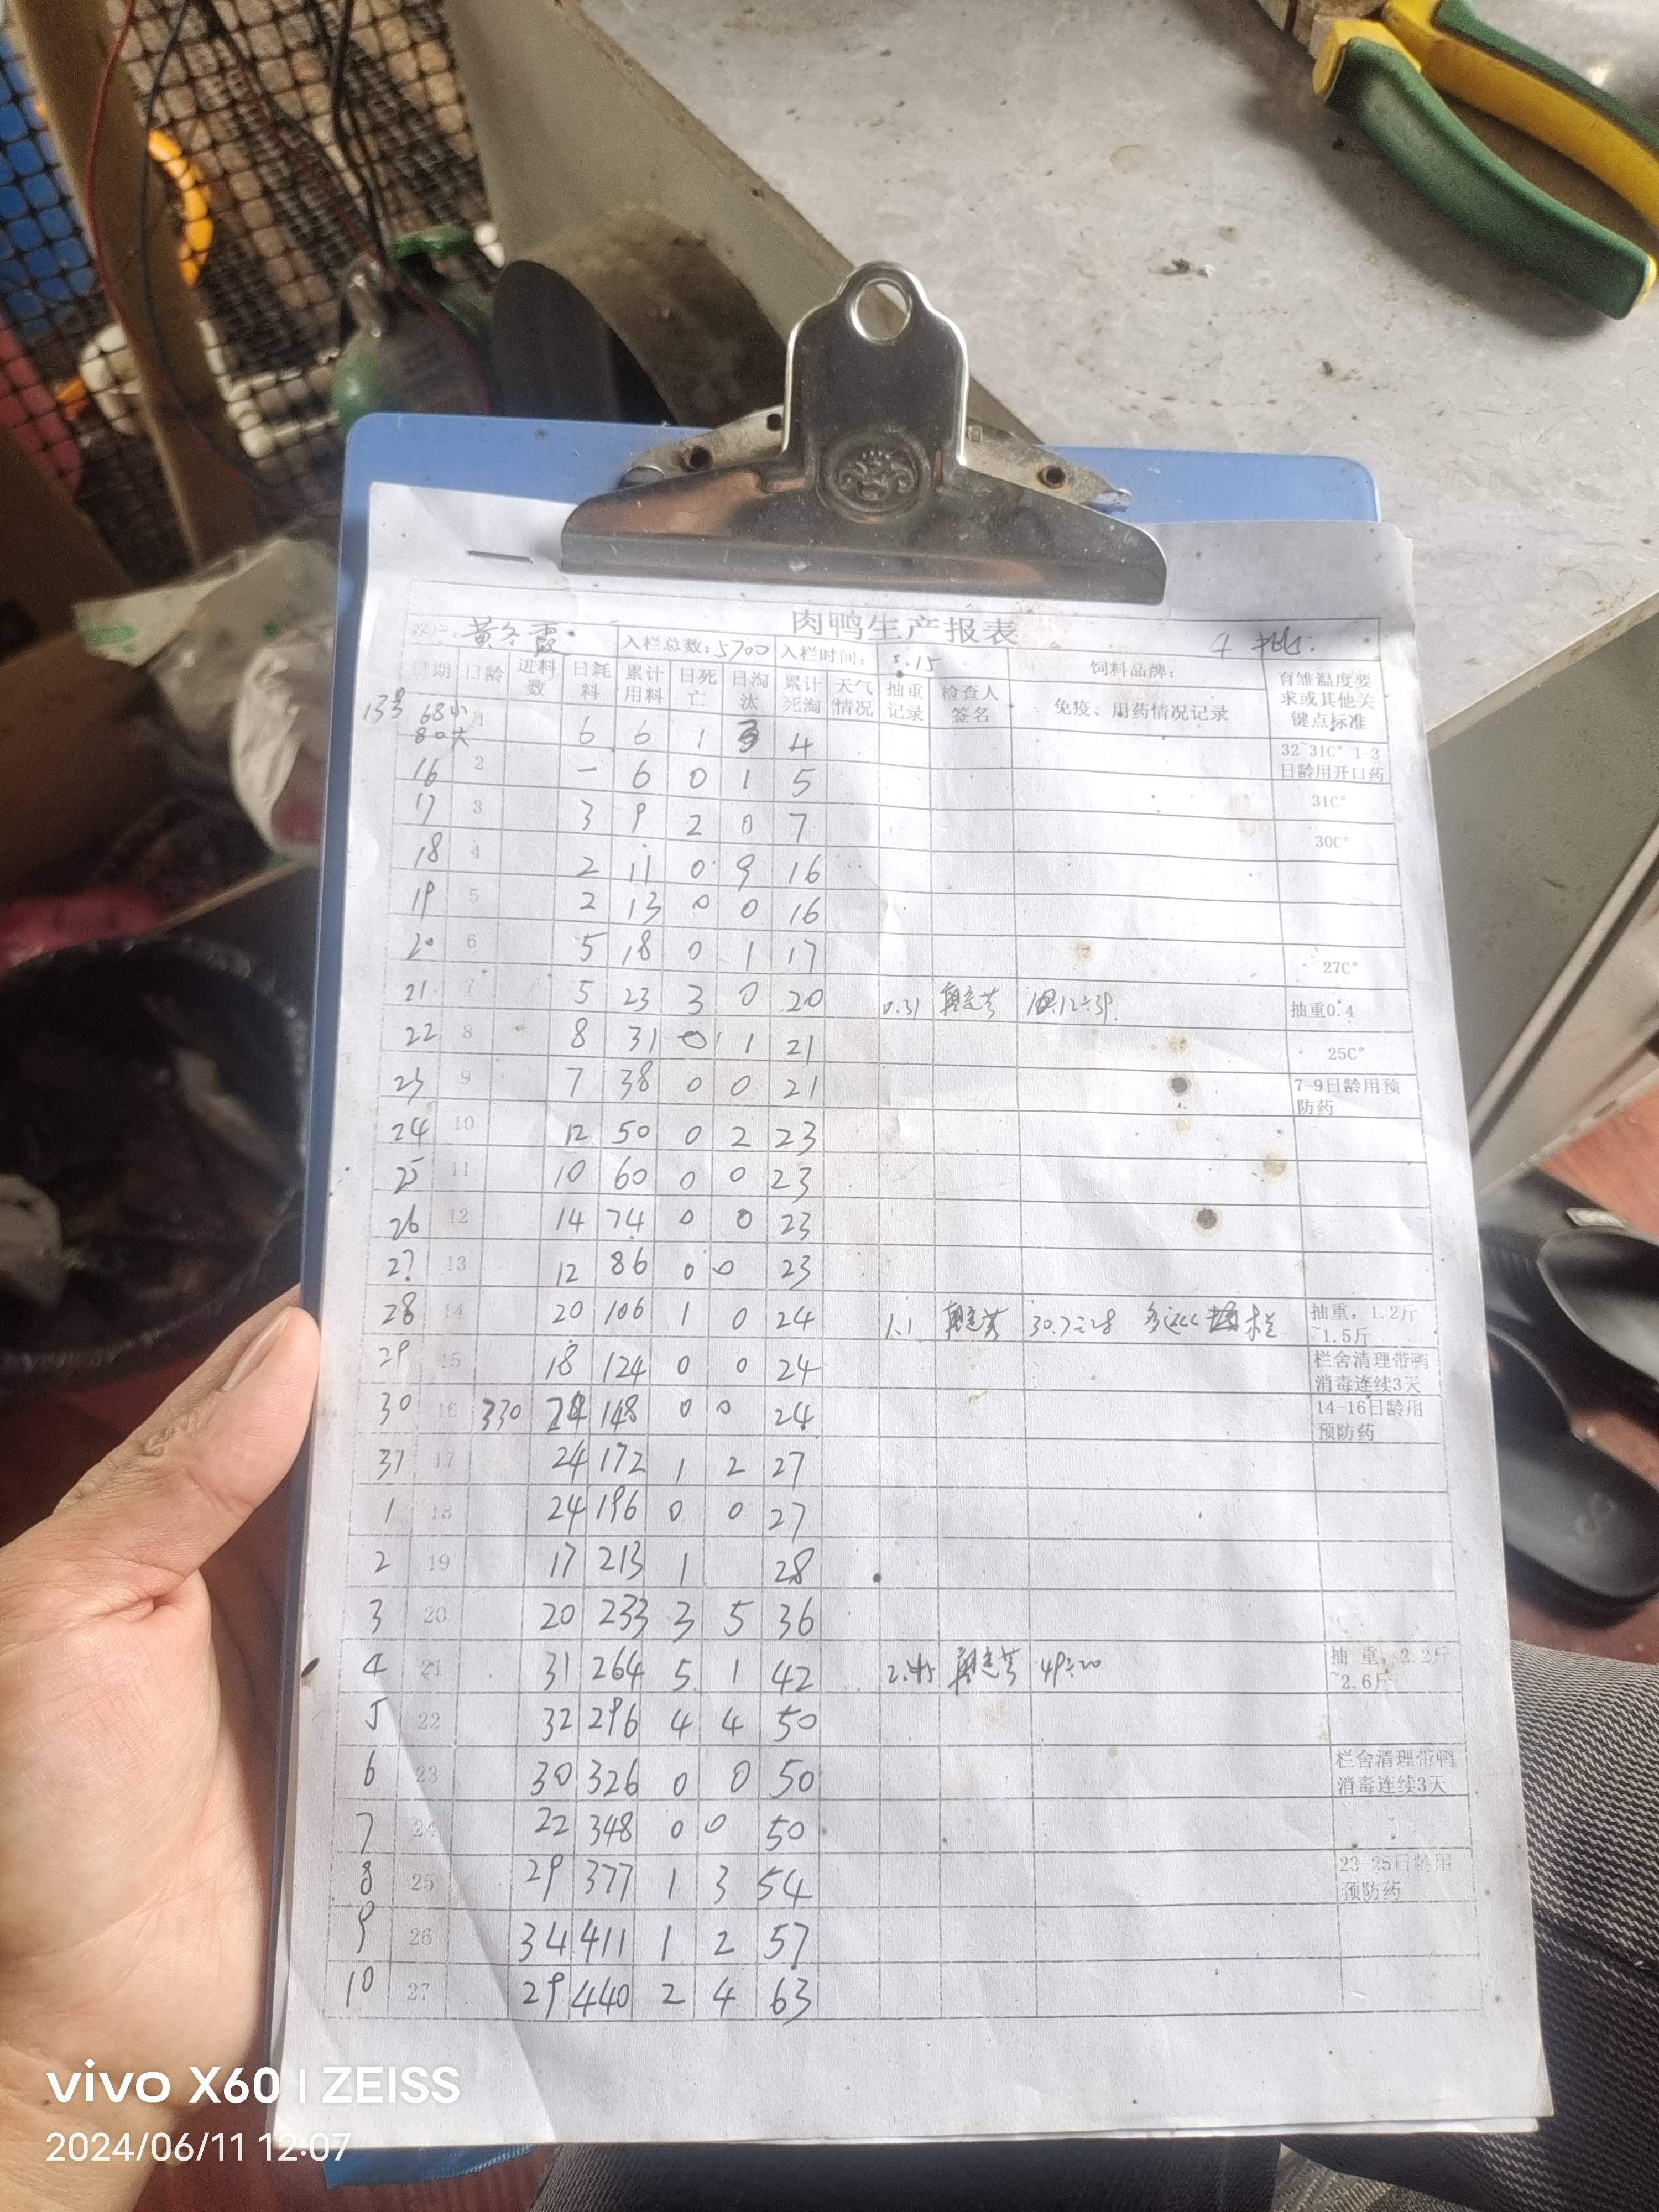 肉鸭生产报表
养户: 黄冬霞 入栏总数: 5700 入栏时间: 5.15 饲料品牌: 4批
日期 日龄 进料数 日耗料 累计用料 日死亡 日淘汰 累计死淘 天气情况 抽重记录 检查人签名 免疫、用药情况记录 育雏温度要求或其他关键点标准
13号 68小 80大 1 6 6 1 3 4 32~31C° 1-3日龄用开口药
16 2 一 6 0 1 5 31C°
17 3 3 9 2 0 7 30C°
18 4 2 11 0 9 16
19 5 2 13 0 0 16
20 6 5 18 0 1 17 27C°
21 7 5 23 3 0 20 0.31 抽重0.4
22 8 8 31 0 1 21 25C°
23 9 7 38 0 0 21 7-9日龄用预防药
24 10 12 50 0 2 23
25 11 10 60 0 0 23
26 12 14 74 0 0 23
27 13 12 86 0 0 23
28 14 20 106 1 0 24 1.1 抽重, 1.2斤~1.5斤
29 15 18 124 0 0 24 栏舍清理带鸭消毒连续3天
30 16 330 24 148 0 0 24 14-16日龄用预防药
31 17 24 172 1 2 27
1 18 24 196 0 0 27
2 19 17 213 1 28
3 20 20 233 3 5 36
4 21 31 264 5 1 42 2.45 49÷20 抽重, 2.2斤~2.6斤
5 22 32 296 4 4 50
6 23 30 326 0 0 50 栏舍清理带鸭消毒连续3天
7 24 22 348 0 0 50
8 25 29 377 1 3 54 23-25日龄用预防药
9 26 34 411 1 2 57
10 27 29 440 2 4 63
vivo X60 | ZEISS
2024/06/11 12:07